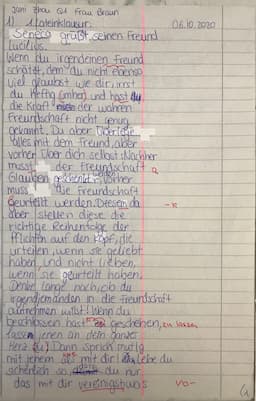 Jani Zhou Q1 Frau Braun
1) 1. Lateinklausur. 06.10.2020
Seneca grüßt seinen Freund
Lucilius.
Wenn du irgendeinen Freund
schätzt, dem du nicht ebenso
viel glaubst wie dir, irrst
du heftig (umher) und hast du
die Kraft der wahren
Freundschaft nicht genug
gekannt. Du aber überlege
alles mit dem Freund, aber
vorher über dich selbst: Nachher
muss der Freundschaft
Glauben geschenkt werden, vorher
muss die Freundschaft
geurteilt werden. Diesen da
aber stellen diese die
richtige Reihenfolge der
Pflichten auf den Kopf, die
urteilen, wenn sie geliebt
haben und nicht lieben,
wenn sie geurteilt haben.
Denke lange nach, ob du
irgendjemanden in die Freundschaft
aufnehmen willst! Wenn du
beschlossen hast es geschehen, zu lassen
lassen jenen an dein ganzes
Herz zu! Dann sprich mutig
mit jenem als mit dir! lebe du
sicherlich so du nur
das mit dir